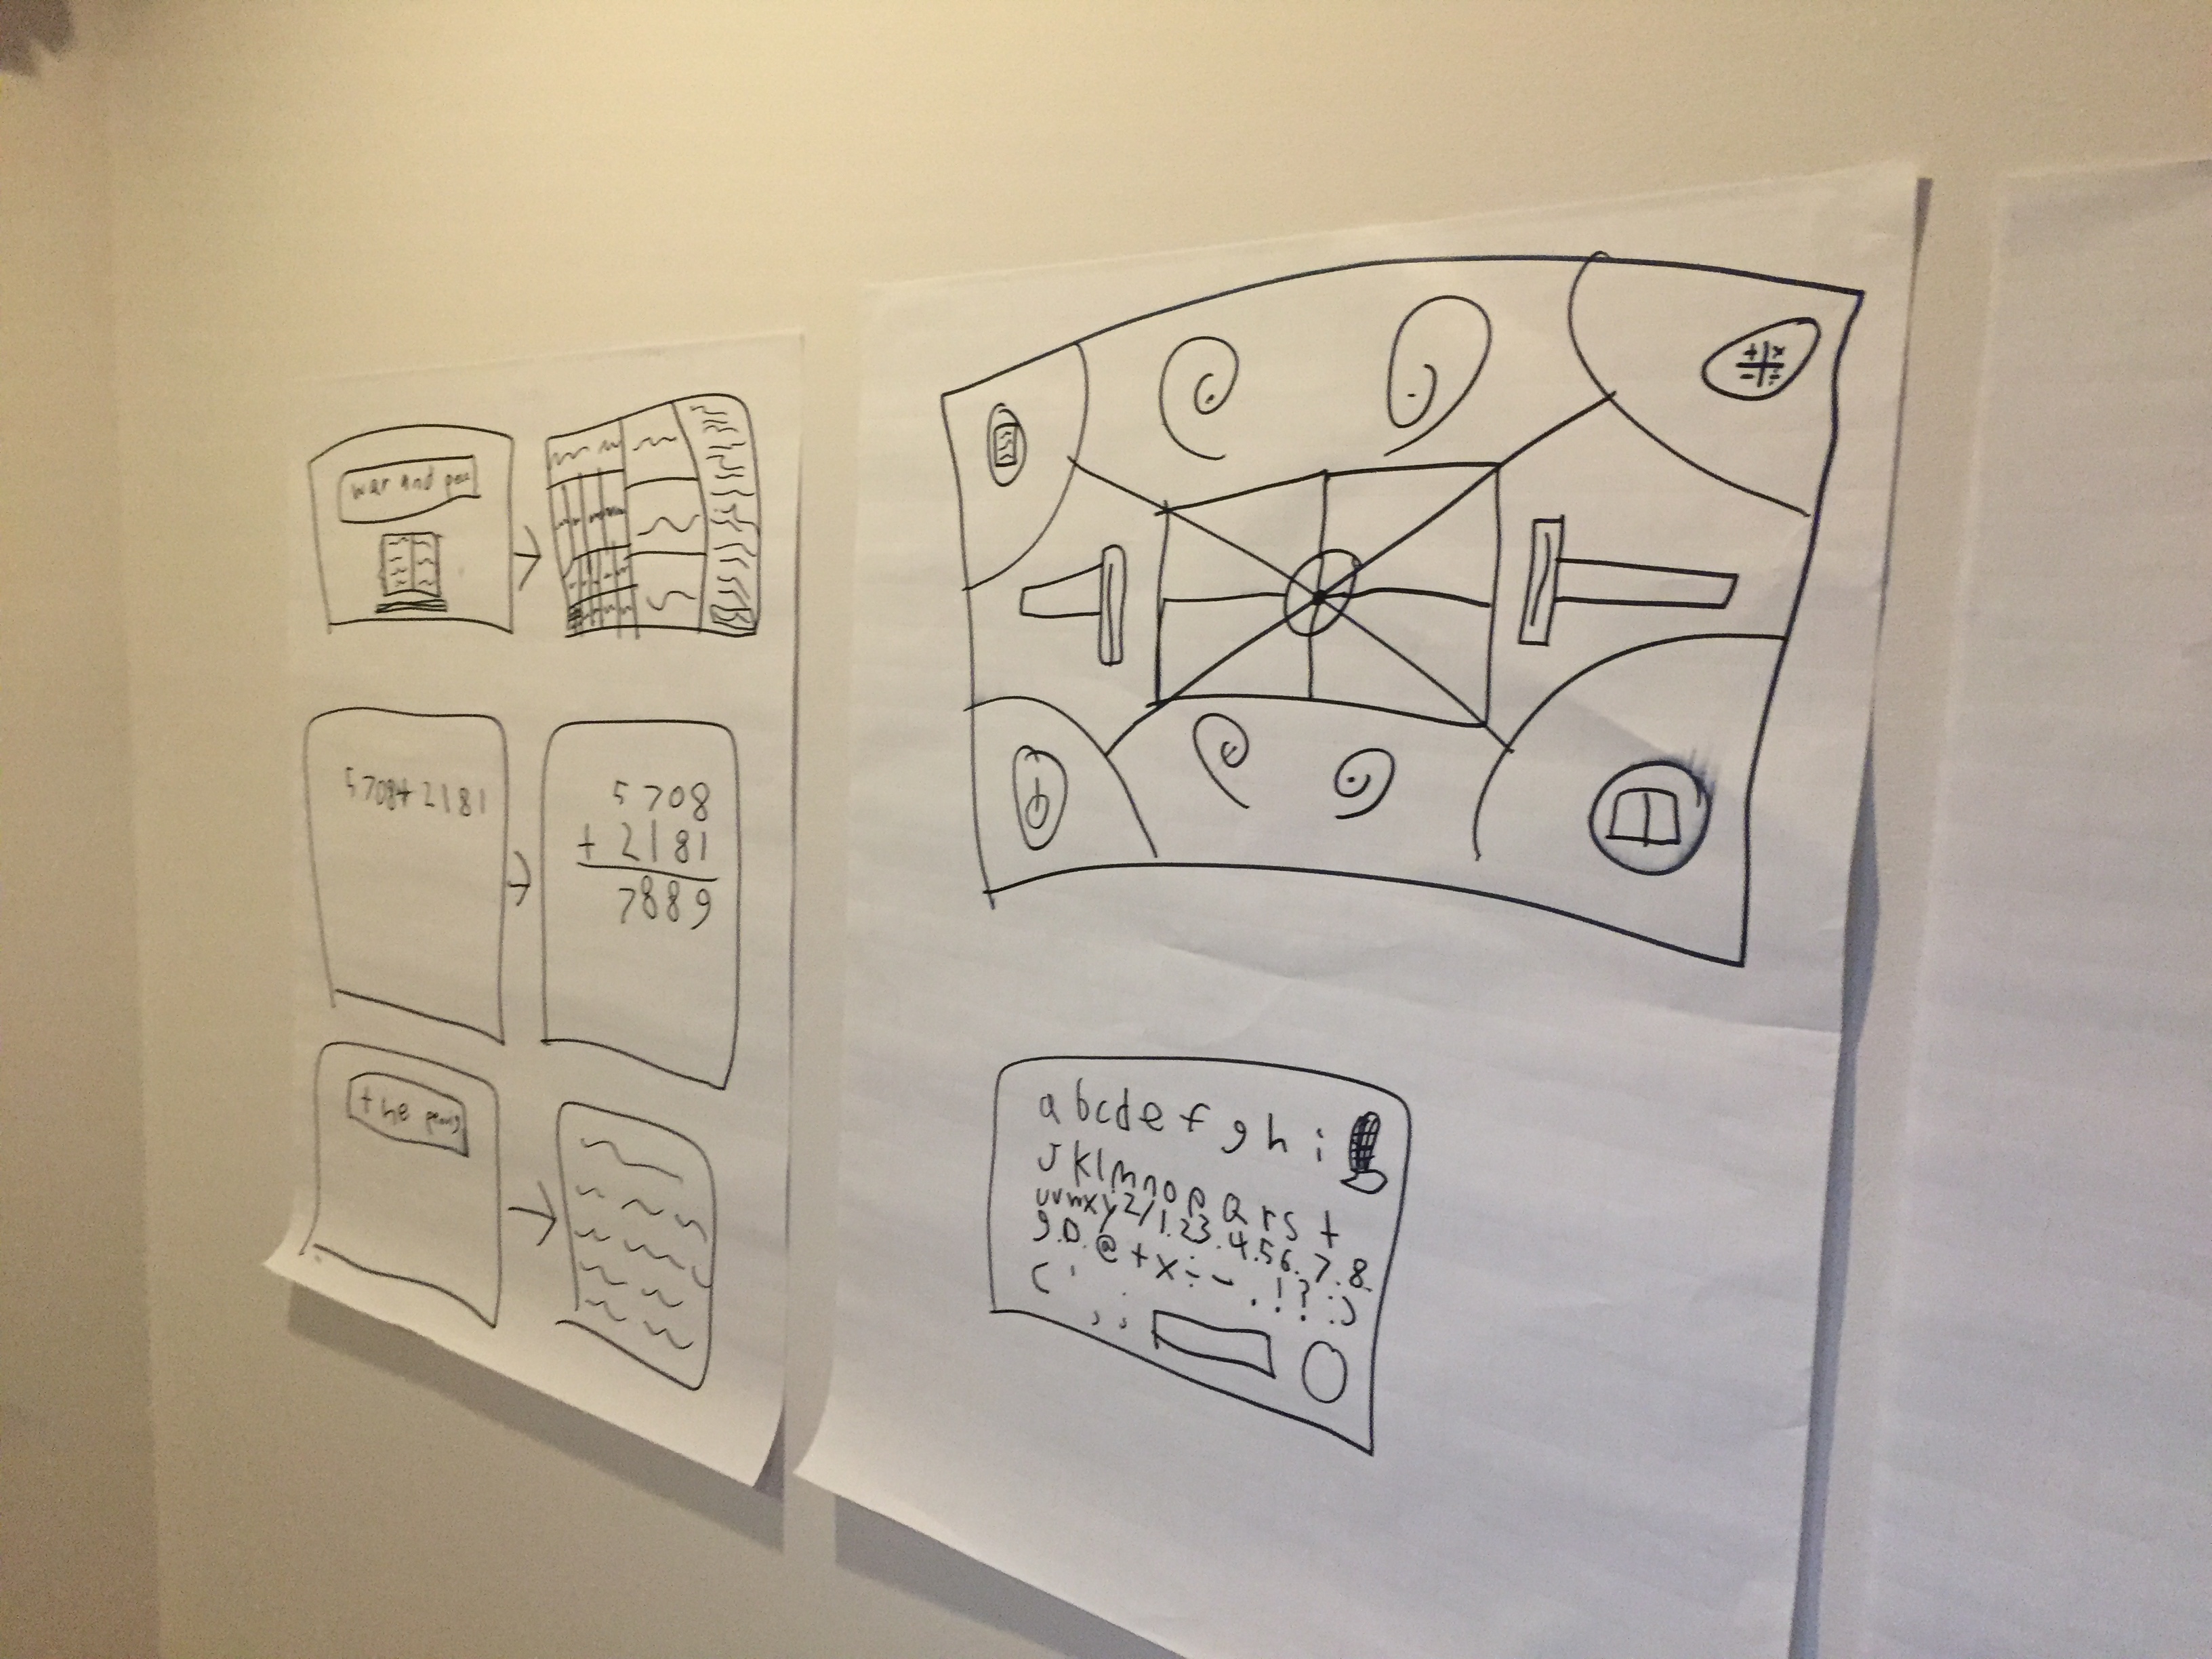 war and pea
5708+2181
5708
+ 2181
7889
the
+ x
- ÷
a b c d e f g h i
J K l m n o p Q r s t
u v w x y z / 1. 2 3. 4. 5 6. 7. 8.
9. 0. @ + x ÷ - . ! ? : )
( ' , ;